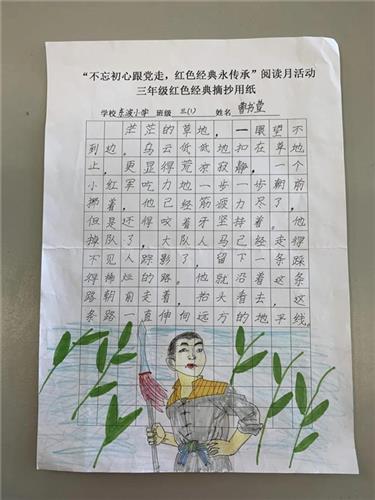 “不忘初心跟党走，红色经典永传承”阅读月活动
三年级红色经典摘抄用纸
学校 东波小学 班级 三(1) 姓名
茫茫的草地，一眼望不
到边。乌云低低地扣在草地
上，更显得荒凉寂静，一个
小红军吃力地一步一步朝前
挪着，他已经筋疲力尽了，
但是还得咬着牙坚持着。他
掉队了，大队人马已经走得
不见人踪影了，留下一条踩
得稀烂的路。他就沿着这条
路朝前走着，抬头看去，这
条路一直伸向远方的地平线。